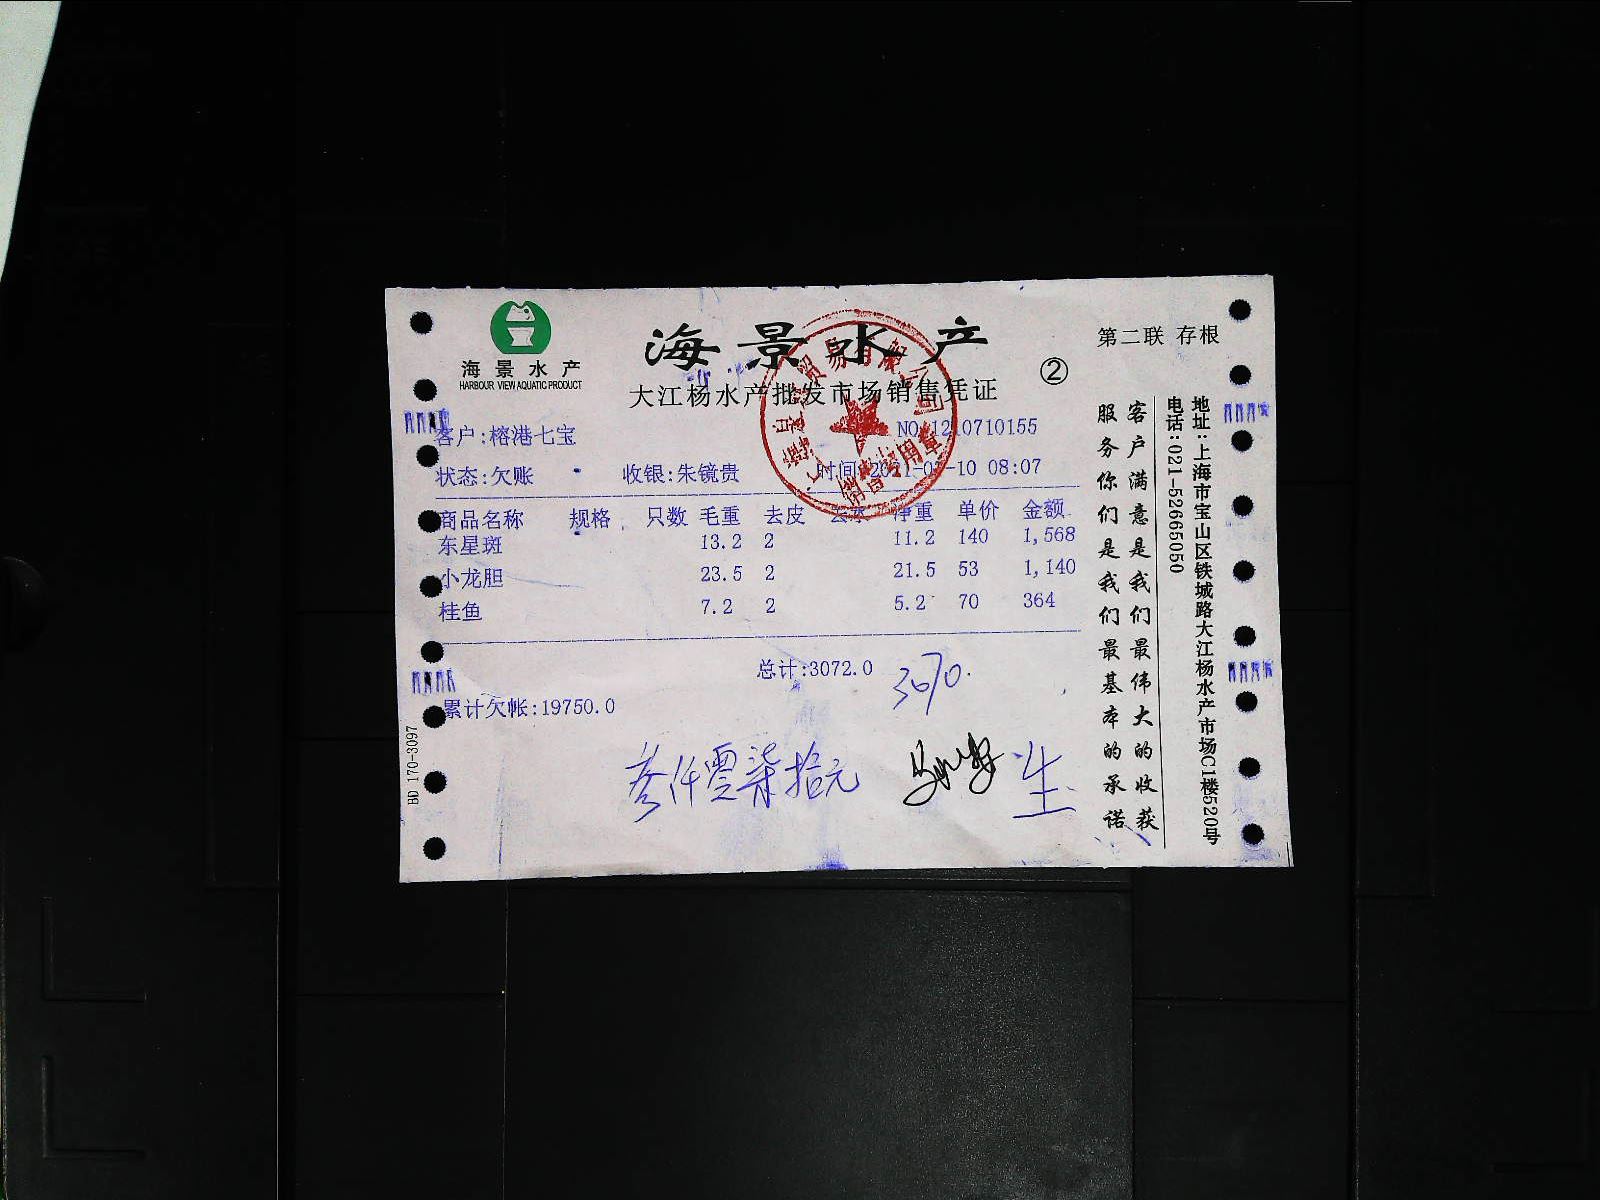 海景水产
HARBOUR VIEW AQUATIC PRODUCT
海景水产
大江杨水产批发市场销售凭证
②
第二联 存根
客户:榕港七宝
NO:1210710155
状态:欠账 收银:朱镜贵 时间: 10 08:07
商品名称 规格 只数 毛重 去皮 去水 净重 单价 金额
东星斑 13.2 2 11.2 140 1,568
小龙胆 23.5 2 21.5 53 1,140
桂鱼 7.2 2 5.2 70 364
总计:3072.0 3070.
累计欠帐:19750.0
叁仟零柒拾元
BD 170-3097
客户满意是我们最伟大的收获
服务你们是我们最基本的承诺
地址:上海市宝山区铁城路大江杨水产市场C1楼520号
电话:021-52665050
贸易有限公司
销售专用章